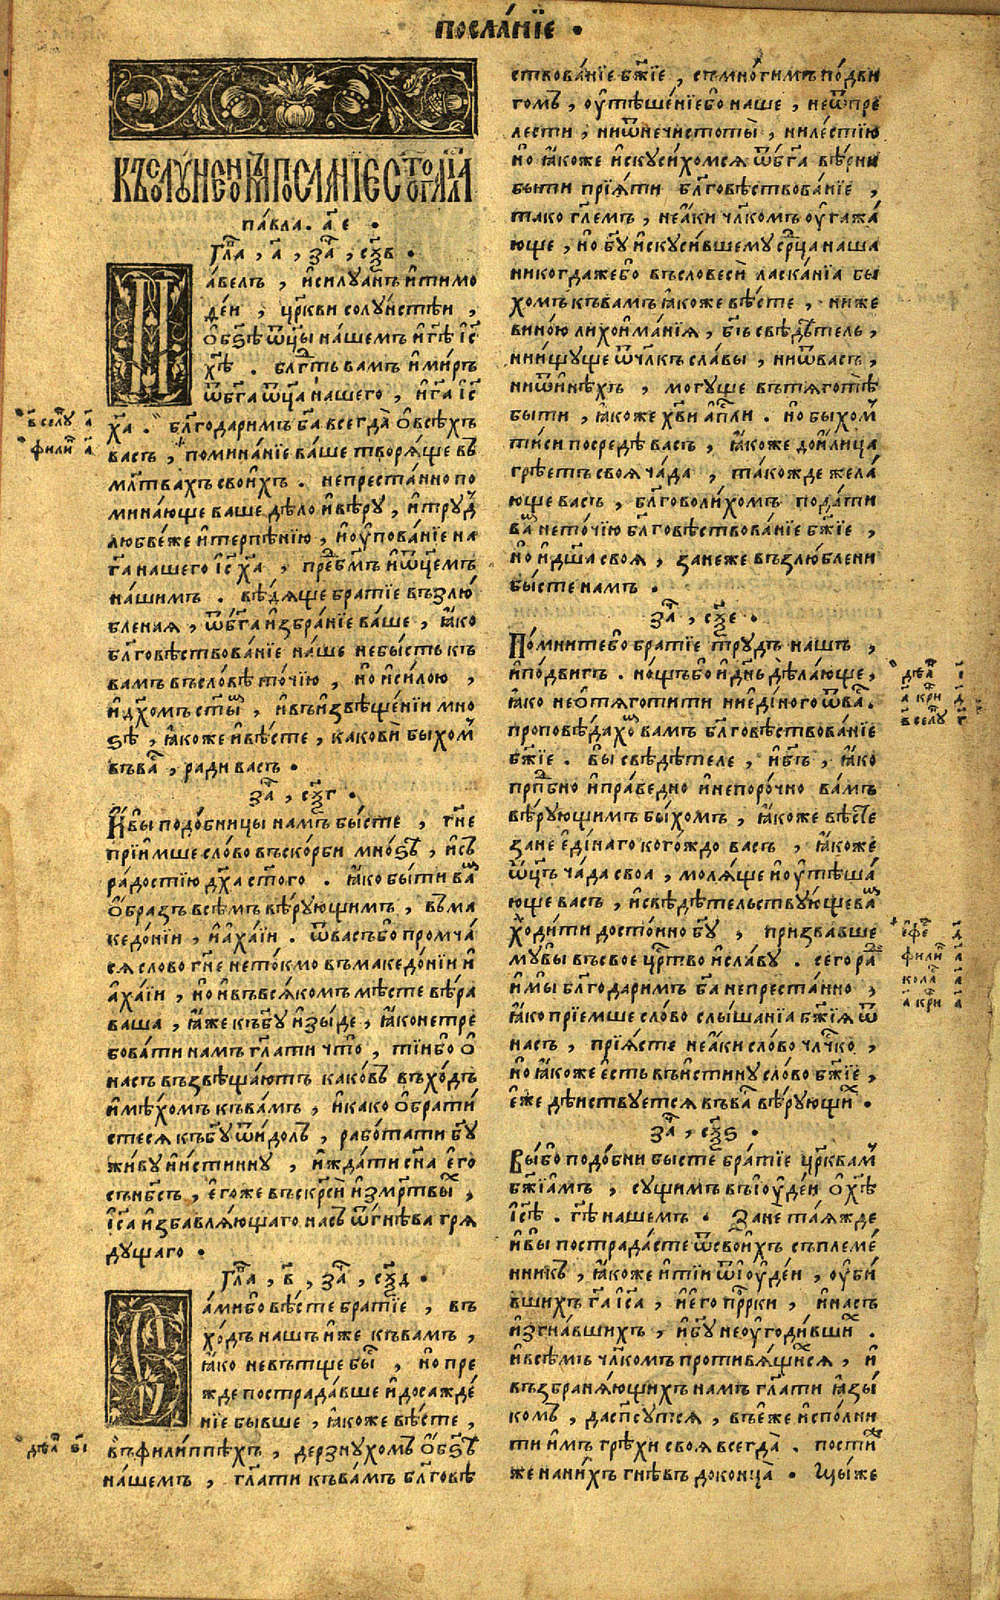 посла́нїе •
къ солꙋ́неномъ посла́нїе ст҃го а҆пⷭ҇ла
па́вла. а҃ е •
гл҃а , а҃ , за҃ , сѯ҃в •
а́велъ , и҆силꙋа́нъ и҆тимо
ѳеи , цр҃кви солꙋ́нстѣи ,
о҆бз҃ѣ ѿц҃ы на́шемъ и҆гⷭ҇ѣ і҆с҃
хⷭ҇ѣ . блгⷣть вамъ и҆ми́ръ
ѿбг҃а ѿц҃а нашего , и҆гⷭ҇а і҆с҃
х҃а . бл҃годаримъ бг҃а всегда̀ о҆всѣ́хъ
васъ , помина́нїе ва́ше творѧ́ще въ
мл҃твахъ свои́хъ . непреста́нно по
мина́юще ваше дѣ́ло и҆вѣ́рꙋ , и҆трꙋ́д
любве́же и҆терпѣ́нїю , и҆ѹ҆пова́нїе на
г҃а нашего і҆с҃ х҃а , пре́дбг҃мъ и҆ѿц҃емъ
на́шимъ . вѣ́дѧще братїе възлю́
бленаѧ , ѿбг҃а и҆збра́нїе ва́ше , ꙗ҆́ко
бл҃говѣствова́нїе на́ше небы́сть къ
вамъ въсло́вѣ то́чїю , но и҆си́лою ,
и҆дх҃омъ ст҃ымъ , и҆въи҆звѣще́нїи мно
зѣ , ꙗ҆́коже и҆вѣ́сте , какови̇̀ бы́хом
въва́ , ради васъ •
за҃ , сѯ҃г •
И҆вы̀ подо́бницы намъ бы́сте , гн҃е
прїи́мше сло́во въско́рби мно́зѣ , и҆съ
ра́достїю дх҃а ст҃го . ꙗ҆́ко бы́ти ва́
о҆́бразъ всѣ́мъ вѣ́рꙋющимъ , въма
кедо́нїи , и҆а҆ха́їи . ѿва́събо̀ промча́
сѧ слово гн҃е нето́кмо въмакедо́нїи и҆
а҆ха́їи , но и҆въвсѧ́комъ мѣ́сте вѣ́ра
ваша , ꙗ҆́же къбг҃ꙋ и҆зы́де , ꙗ҆конетре
бова́ти намъ гл҃ати что̀ , ті́ибо̀ о҆
насъ възвѣща́ютъ како́въ въхо́дъ
и҆мѣ́хомъ къва́мъ , и҆како о҆брати́
стесѧ къбг҃ꙋ ѿи́долъ , рабо́тати бг҃ꙋ
жи́вꙋ и҆и́стиннꙋ , и҆жда́ти сн҃а е҆го̀
съ нб҃съ , е҆гоже въскрⷭ҇ѝ и҆змр҃твы́х ,
і҆с҃а и҆збавлѧ́ющаго насъ ѿгнѣ́ва грѧ
дꙋ́щаго •
Гл҃а , в҃ , за҃ , сѯ҃д •
а́мибо вѣ́сте бра́тїе , въ
хо́дъ нашъ и҆́же къва́мъ ,
ꙗ҆́ко невъ́тще бы́ , но пре
жде пострада́вше и҆ досажде́
нїе бы́вше , ꙗ҆́коже вѣ́сте ,
въфили́ппѣхъ , дерзнꙋ́хомъ о҆бз҃ѣ
на́шемъ , гл҃ати къва́мъ бл҃говѣ
ствова́нїе бж҃їе , съмно́гимъ по́дви
гомъ , ѹ҆тѣше́нїебо наше , неѿпре́
лести , ниѿнечистоты̀ , ниле́стїю
но ꙗ҆́коже и҆скꙋси́хомсѧ ѿбг҃а вѣ́рни
бы́ти прїѧ́ти бл҃говѣствова́нїе ,
тако гл҃емъ , неа҆́ки чл҃комъ ѹ҆гажа́
юще , но бг҃ꙋ и҆скꙋси́вшемꙋ срⷣца наша
никогда́жебо въсловеси̇̀ ласка́нїѧ бы
хомъ къвамъ ꙗ҆́коже вѣ́сте , ни́же
вино́ю лихои҆ма́нїѧ , бг҃ъ свѣдѣ́тель ,
нии҆́щꙋще ѿчл҃къ сла́вы , ниѿва́съ ,
ниѿи҆нѣ́хъ , могꙋ́ще въ́тѧготѣ
бы́ти , ꙗ҆́коже хв҃и а҆п҃ли . но быхо́м
ти́си посредѣ̀ васъ , ꙗ҆́коже дои́лица
грѣ́етъ своѧ̀ ча́да , та́кожде жела́
юще васъ , бл҃говоли́хомъ пода́ти
ва́ нето́чїю бл҃говѣствова́нїе бж҃їе ,
но и҆дш҃а своѧ̀ , занеже възлю́блени
бы́сте намъ .
за҃ , сѯ҃е •
По́мнитебо братїе трꙋ́дъ нашъ ,
и҆по́двигъ . но́щьбо и҆ дн҃ь дѣ́лающе ,
ꙗ҆́ко неѡ҆тѧготи́ти ниеди́ного ѿва́.
проповѣ́дахо вамъ бл҃говѣствова́нїе
бж҃їе . вы свѣдѣ́теле , и҆бг҃ъ , ꙗ҆́ко
прпⷣбно и҆пра́ведно и҆непоро́чно ва́мъ
вѣ́рꙋющимъ бы́хомъ , ꙗ҆́коже вѣ́сте
зане е҆ди́наго кого́ждо васъ , ꙗ҆́коже
ѿц҃ъ ча́да своа , молѧ́ще и҆ѹ҆тѣша́
юще васъ , и҆свѣдѣ́тельствꙋ́ющева
хо́дити досто́йно бг҃ꙋ , призва́вше
мꙋвы̀ въсвоѐ црⷭ҇тво и҆сла́вꙋ . сего́ ра
и҆мы̀ бл҃годаримъ бг҃а непреста́нно ,
ꙗ҆́ко прїе́мше сло́во слы́шанїѧ бж҃їѧ ѿ
насъ , прїѧ́сте неа҆́ки сло́во чл҃чко ,
но ꙗ҆́коже е҆́сть въи́стинꙋ сло́во бж҃їе ,
е҆́же дѣ́йствꙋетсѧ въва́ вѣ́рꙋющи́х •
за҃ , сѯ҃ѕ •
Вы́бо подо́бни бысте бра́тїе цр҃квам
бж҃їамъ , сꙋщимъ въі҆ѹде́и о҆хⷭ҇ѣ
і҆с҃ѣ . гⷭ҇ѣ нашемъ • Зане та́ѧжде
и҆вы̀ пострада́сте ѿсвои́хъ съпле́ме
нникъ , ꙗ҆́коже и҆ті́и ѿі҆ѹде́и , ѹ҆би́
вшихъ гⷭ҇а і҆с҃а , и҆е҆го прⷪ҇рки , и҆на́съ
и҆згна́вшихъ , и҆бг҃ꙋ неѹ҆годи́вши́х .
и҆всѣ́мъ чл҃комъ проти́вѧщи́хсѧ , и҆
възбранѧ́ющихъ намъ гл҃ати ꙗ҆зы́
комъ , даспⷭ҇ꙋтсѧ , въе҆́же и҆спо́лни
ти и҆́мъ грѣхи своѧ всегда̀ . пости́
же нани́хъ гнѣ́въ доконца̀ • Мы́же
в҃ солꙋ́ а҃
фили а҃
дѣѧ҃ в҃і
дѣѧ҃
а҃ кри
в҃ солꙋ
е҆фе д҃
фили а҃
кола а҃
а҃ кри а҃